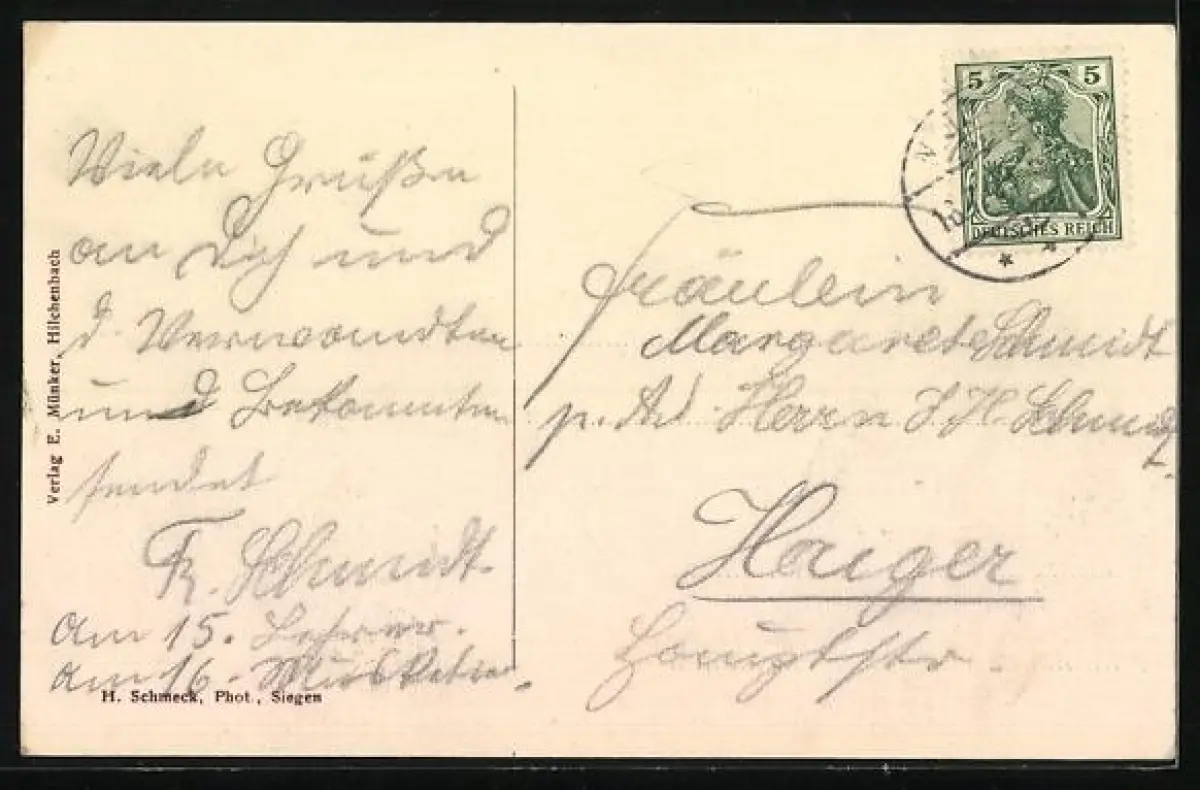 Viele Grüße
an Dich und
d. Verwandten
und Bekannten
sendet
Fr. Schmidt
Am 15. Lehrer.
Am 16. Musketier.
Verlag E. Münker, Hilchenbach
H. Schmeck, Phot., Siegen
5 5
DEUTSCHES REICH
Fräulein
Margaret Schmidt
p. Ad Herrn H. Schmidt
Haiger
Hauptstr.